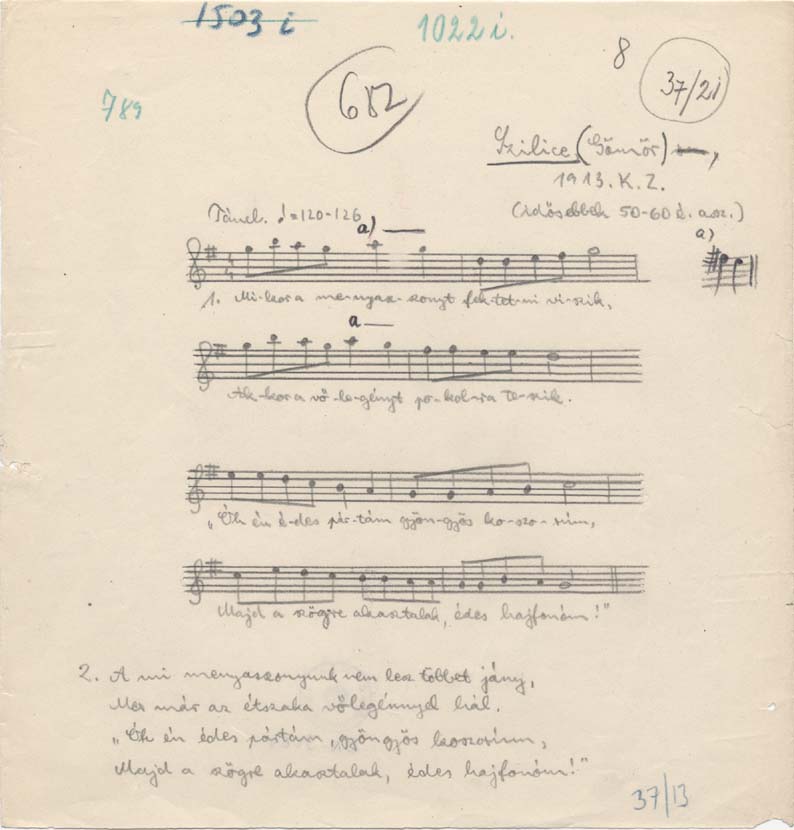 1503 i
1022 i.
8
37/2i
682
789
Szilice (Gömör),
1913. K. Z.
Táncl. ♩=120-126
(idősebbek 50-60 é. asz.)
a)
a)
1. Mi-kor a me-nyasz-szonyt fek-tet-ni vi-szik,
a
Ak-kor a vő-le-gényt po-kol-ra te-szik.
„Ók én é-des pár-tám gyön-gyös ko-szo-rúm,
Majd a szögre akasztalak, édes hajfonóm!"
2. A mi menyaszonyunk nem lesz többet jány,
Mer már az étszaka vőlegénnyel hál.
„Ók én édes pártám, gyöngyös koszorúm,
Majd a szögre akasztalak, édes hajfonóm!"
37/13